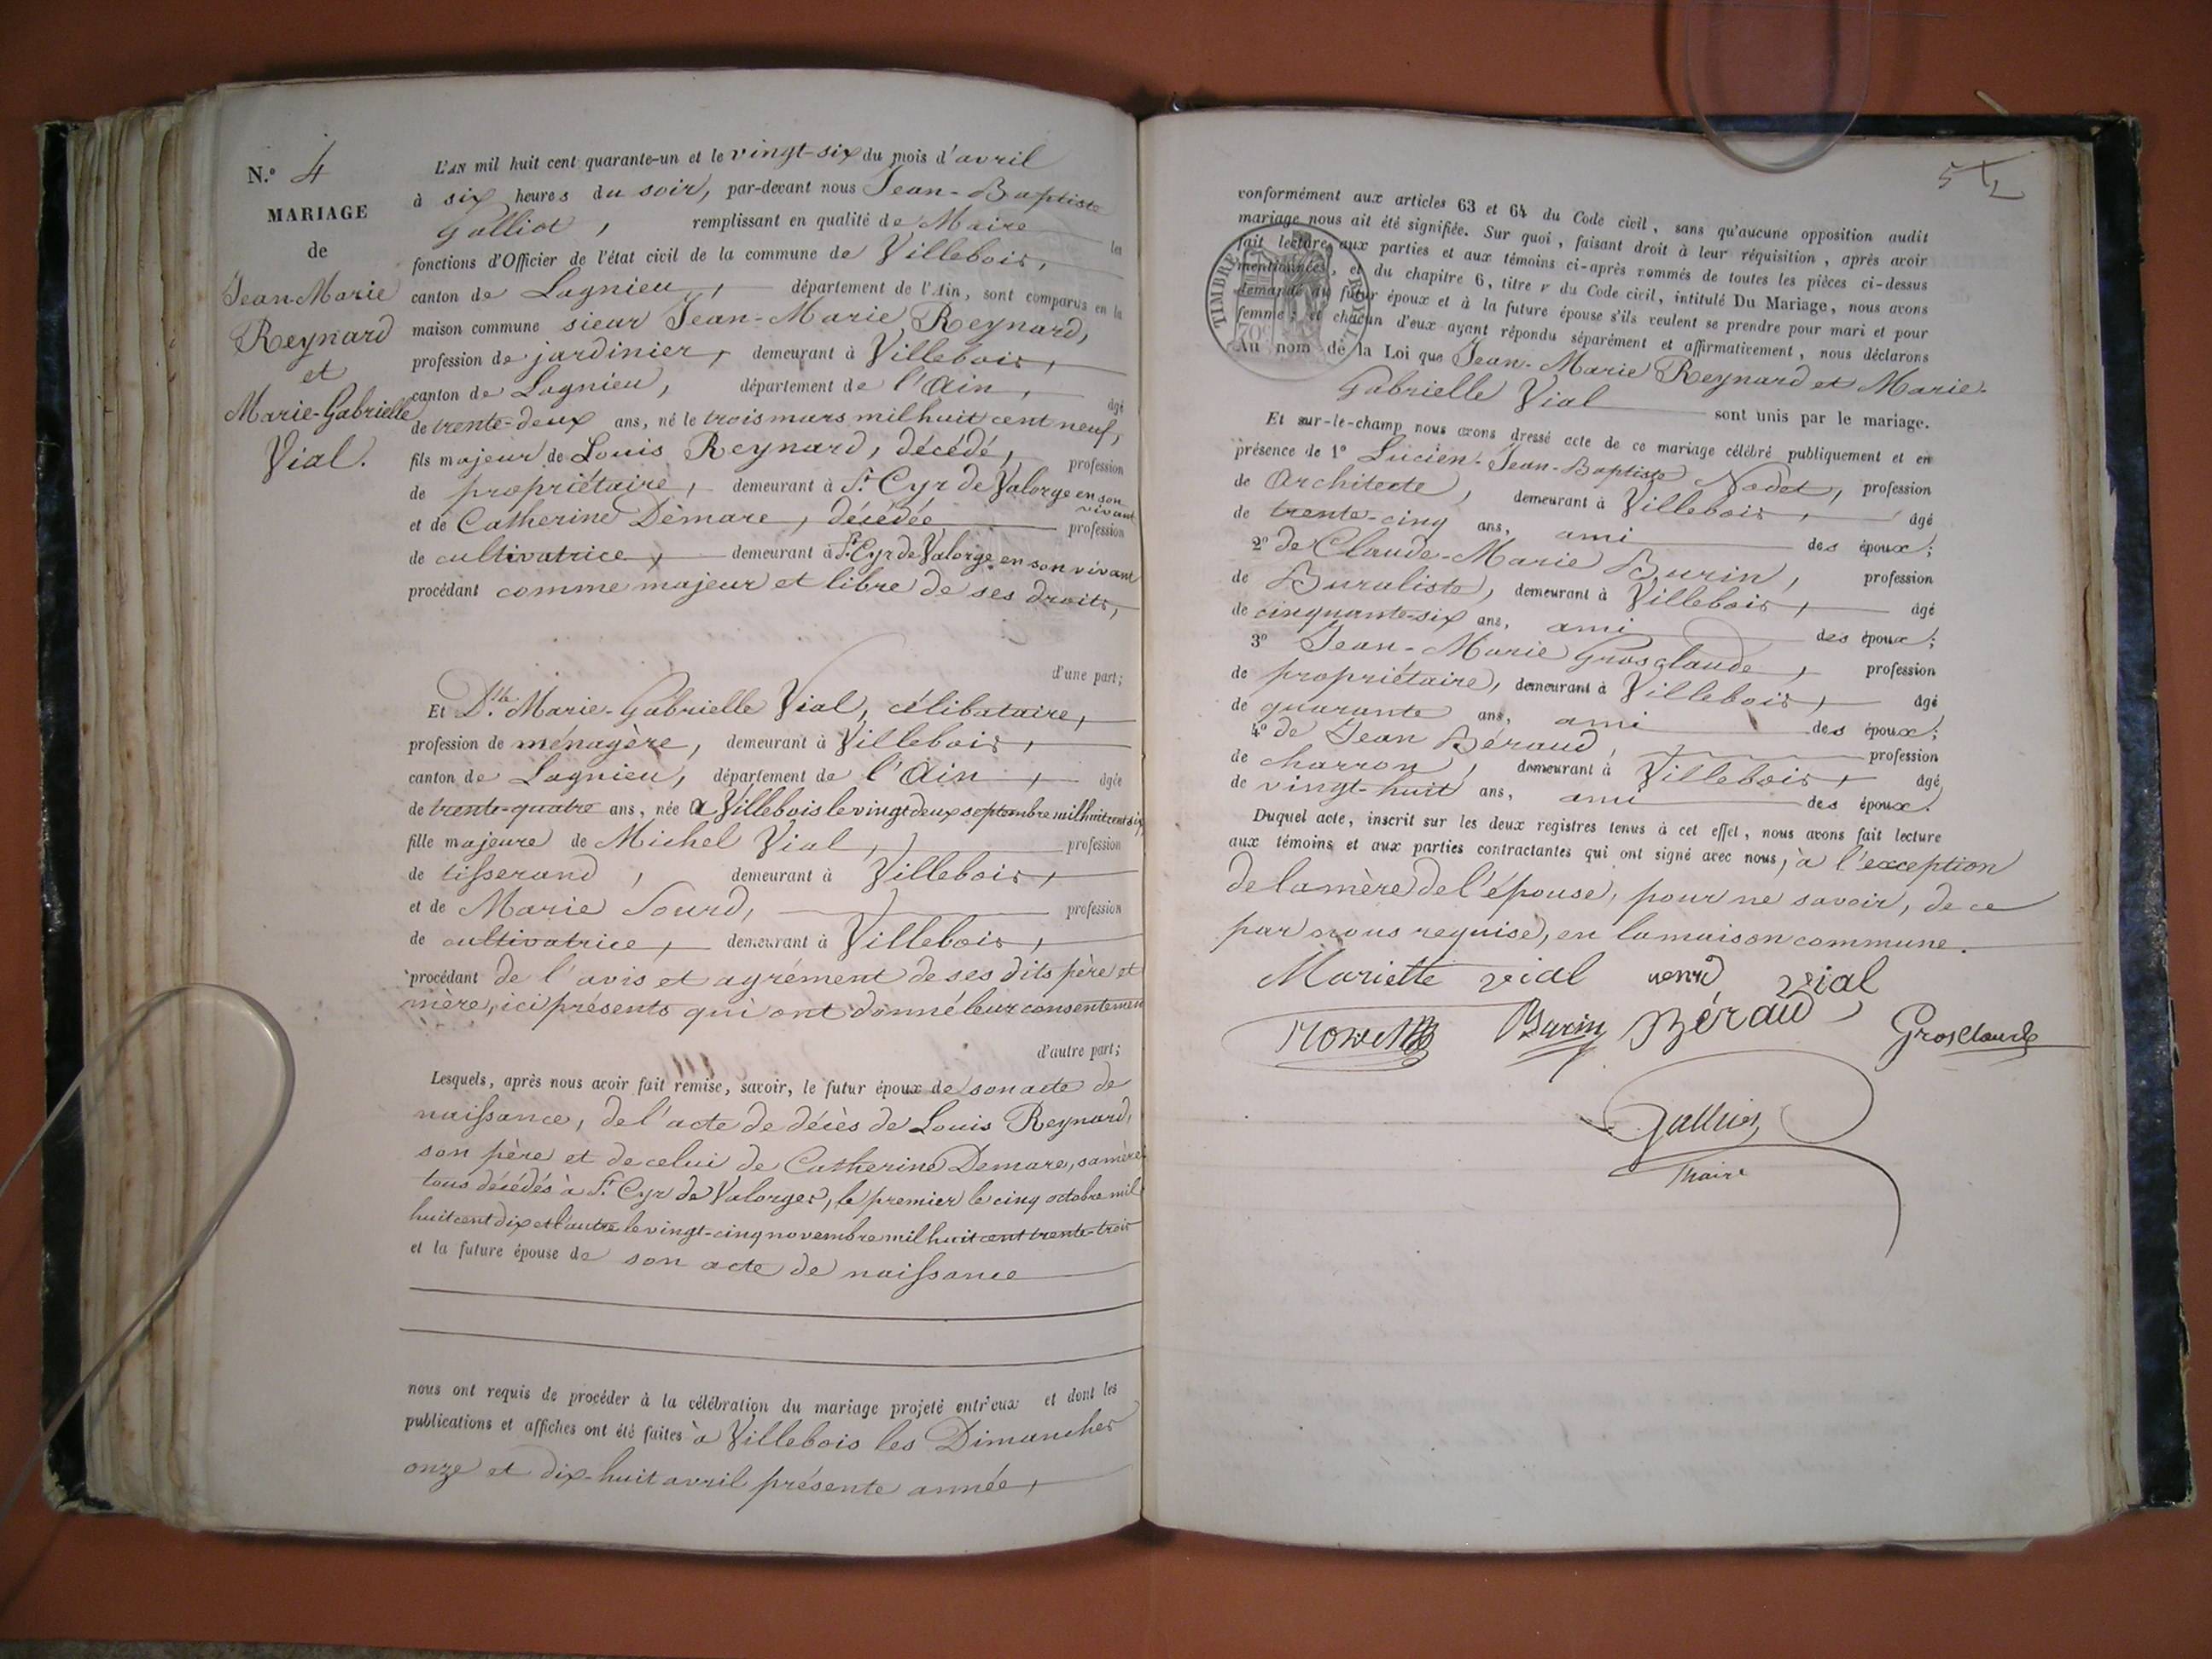 N.° 4
MARIAGE
de
Jean-Marie
Reynard
et
Marie-Gabrielle
Vial.
L'AN mil huit cent quarante-un et le vingt-six du mois d'avril
à six heures du soir, par-devant nous Jean-Baptiste
Galliot, remplissant en qualité de Maire les
fonctions d'Officier de l'état civil de la commune de Villebois,
canton de Lagnieu, département de l'Ain, sont comparus en la
maison commune sieur Jean-Marie Reynard,
profession de jardinier, demeurant à Villebois,
canton de Lagnieu, département de l'Ain, âgé
de trente-deux ans, né le trois mars mil huit cent neuf,
fils majeur de Louis Reynard, décédé, profession
de propriétaire, demeurant à St. Cyr de Valorge en son vivant
et de Catherine Démare, décédée profession
de cultivatrice, demeurant à St. Cyr de Valorge en son vivant
procédant comme majeur et libre de ses droits,
d'une part;
Et Dlle. Marie-Gabrielle Vial, célibataire,
profession de ménagère, demeurant à Villebois,
canton de Lagnieu, département de l'Ain, âgée
de trente-quatre ans, née à Villebois le vingt deux septembre mil huit cent six
fille majeure de Michel Vial, profession
de tisserand, demeurant à Villebois,
et de Marie Sourd, profession
de cultivatrice, demeurant à Villebois,
procédant de l'avis et agrément de ses dits père et
mère, ici présents qui ont donné leur consentemen
d'autre part;
Lesquels, après nous avoir fait remise, savoir, le futur époux de son acte de
naissance, de l'acte de décès de Louis Reynard,
son père et de celui de Catherine Demare, sa mère
tous décédés à St. Cyr de Valorges, le premier le cinq octobre mil
huit cent dix et l'autre le vingt-cinq novembre mil huit cent trente-trois
et la future épouse de son acte de naissance
nous ont requis de procéder à la célébration du mariage projeté entr'eux et dont les
publications et affiches ont été faites à Villebois les Dimanches
onze et dix-huit avril présente année,
TIMBRE ROYAL
70c
conformément aux articles 63 et 64 du Code civil, sans qu'aucune opposition audit
mariage nous ait été signifiée. Sur quoi, faisant droit à leur réquisition, après avoir
fait lecture aux parties et aux témoins ci-après nommés de toutes les pièces ci-dessus
mentionnées, et du chapitre 6, titre v du Code civil, intitulé Du Mariage, nous avons
demandé au futur époux et à la future épouse s'ils veulent se prendre pour mari et pour
femme; et chacun d'eux ayant répondu séparément et affirmativement, nous déclarons
Au nom de la Loi que Jean-Marie Reynard et Marie-
Gabrielle Vial sont unis par le mariage.
Et sur-le-champ nous avons dressé acte de ce mariage célébré publiquement et en
présence de 1° Lucien-Jean-Baptiste Nodet, profession
de Architecte, demeurant à Villebois, âgé
de trente-cinq ans, ami des époux;
2° de Claude-Marie Burin, profession
de Buraliste, demeurant à Villebois, âgé
de cinquante-six ans, ami des époux;
3° Jean-Marie Grosclaude, profession
de propriétaire, demeurant à Villebois, âgé
de quarante ans, ami des époux;
4° de Jean Béraud, profession
de charron, demeurant à Villebois, âgé
de vingt-huit ans, ami des époux.
Duquel acte, inscrit sur les deux registres tenus à cet effet, nous avons fait lecture
aux témoins et aux parties contractantes qui ont signé avec nous, à l'exception
de la mère de l'épouse, pour ne savoir, de ce
par nous requise, en la maison commune.
Mariette vial vial
Burin Béraud Grosclaude
Galliot
Maire